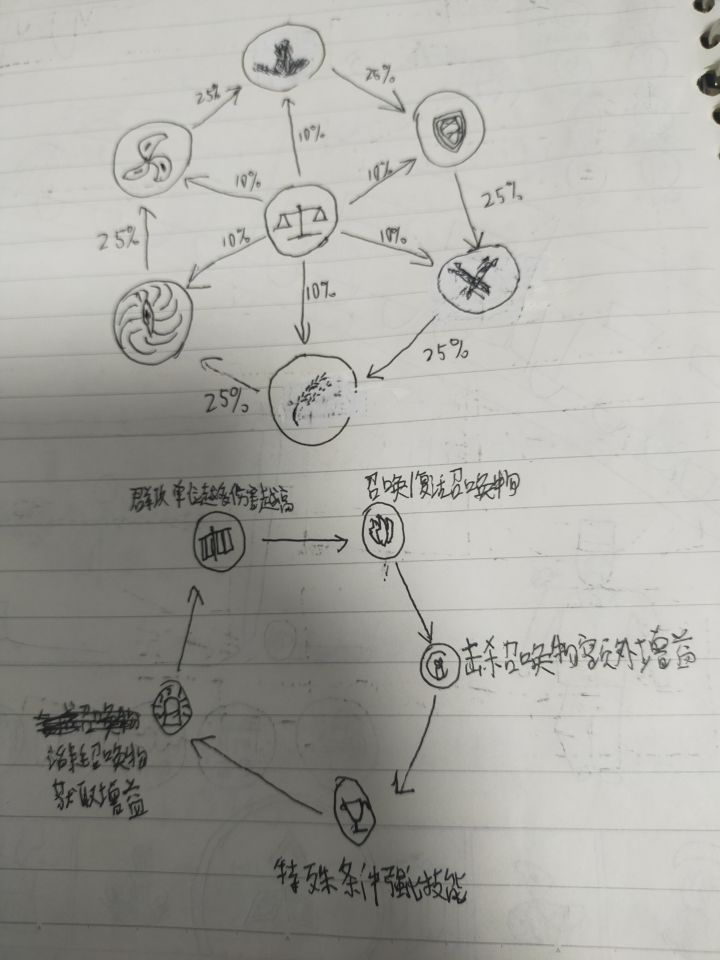 25%
25%
10%
10%
10%
25%
25%
10%
10%
10%
25%
25%
群攻单位越多伤害越高
召唤/复活召唤物
击杀召唤物额外增益
召唤物
消耗召唤物
获取增益
特殊条件强化技能